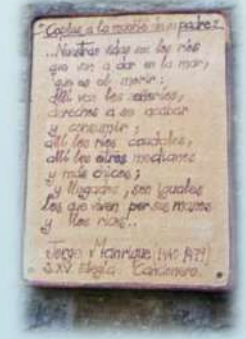 "Coplas a la muerte de mi padre"
...Nuestras vidas son los ríos
que van a dar en la mar,
que es el morir:
allí van los señoríos,
derechos a se acabar
y consumir;
allí los ríos caudales,
allí los otros medianos
y más chicos;
y llegados, son iguales
los que viven por sus manos
y los ricos...
Jorge Manrique (1440-1479)
S.XV. Elegía. Cancionero.